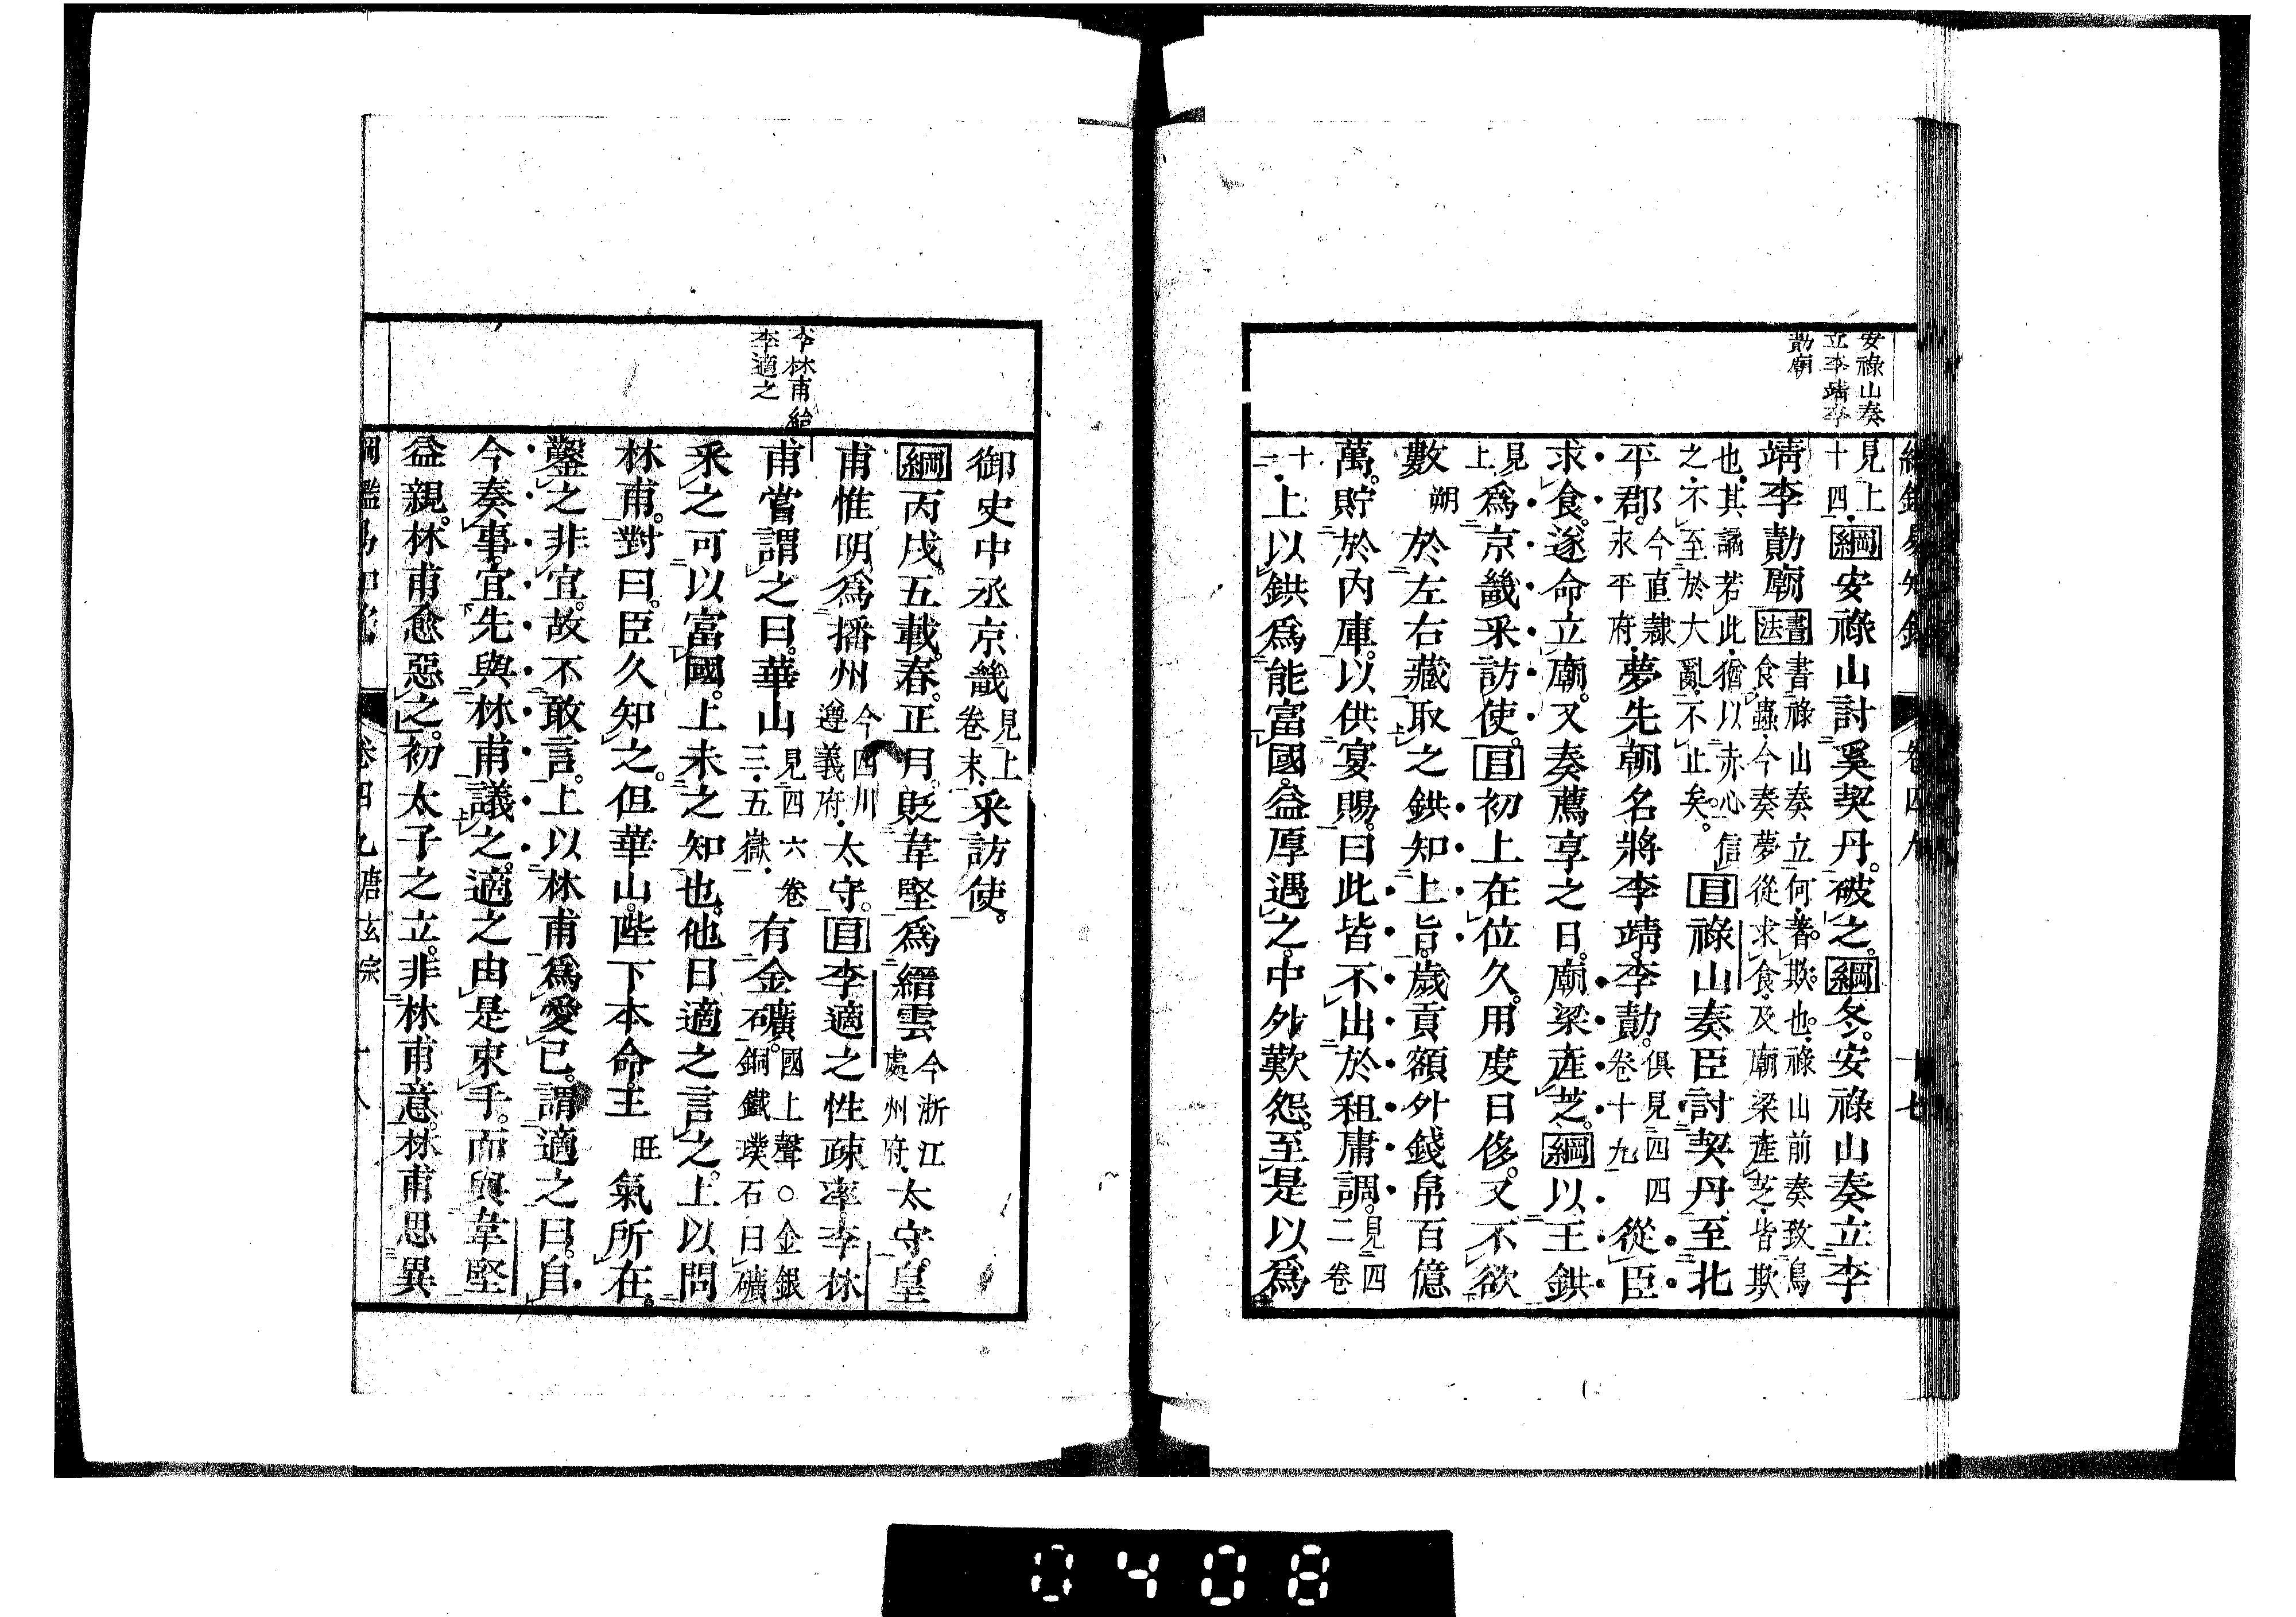 安祿山奏
立李靖李
勣廟
卷四九
十七
見上
十四
綱安祿山討奚契丹。破之。綱冬。安祿山奏立李
靖李勣廟書法書祿山奏立何。著欺也。祿山前奏致鳥
食蟲。今奏夢從求食。及廟梁產芝。皆欺
也。其譎若此。猶以赤心信
之。不至於大亂。不止矣。
目祿山奏臣討契丹至北
平郡。今直隸
永平府。
夢先朝名將李靖。李勣。俱見四四
卷十九
從臣
求食。遂命立廟。又奏薦享之日。廟梁產芝。綱以王鉷
見
上
爲京畿采訪使。目初上在位久。用度日侈。又不欲
數朔於左右藏取之鉷知上旨。歲貢額外錢帛百億
萬。貯於內庫。以供宴賜。曰此皆不出於租庸調。見四
二卷
十
二
上以鉷爲能富國。益厚遇之。中外歎怨。至是以爲
李適之
御史中丞京畿見上
卷末
采訪使。
綱丙戌。五載。春。正月。貶韋堅爲縉雲今浙江
處州府。
太守。皇
甫惟明爲播州今四川
遵義府。
太守。目李適之性疎率。李林
甫嘗謂之曰。華山見四六卷
三。五嶽。
有金礦。國上聲。○金銀
銅鐵璞石曰礦
采之可以富國。上未之知也。他日適之言之。上以問
林甫。對曰。臣久知之。但華山。陛下本命。王旺氣所在。
鑿之非宜。故不敢言。上以林甫爲愛己。謂適之曰。自
今奏事。宜先與林甫議之。適之由是束手。而與韋堅
益親。林甫愈惡之。初太子之立。非林甫意。林甫恐異
唐玄宗
0408